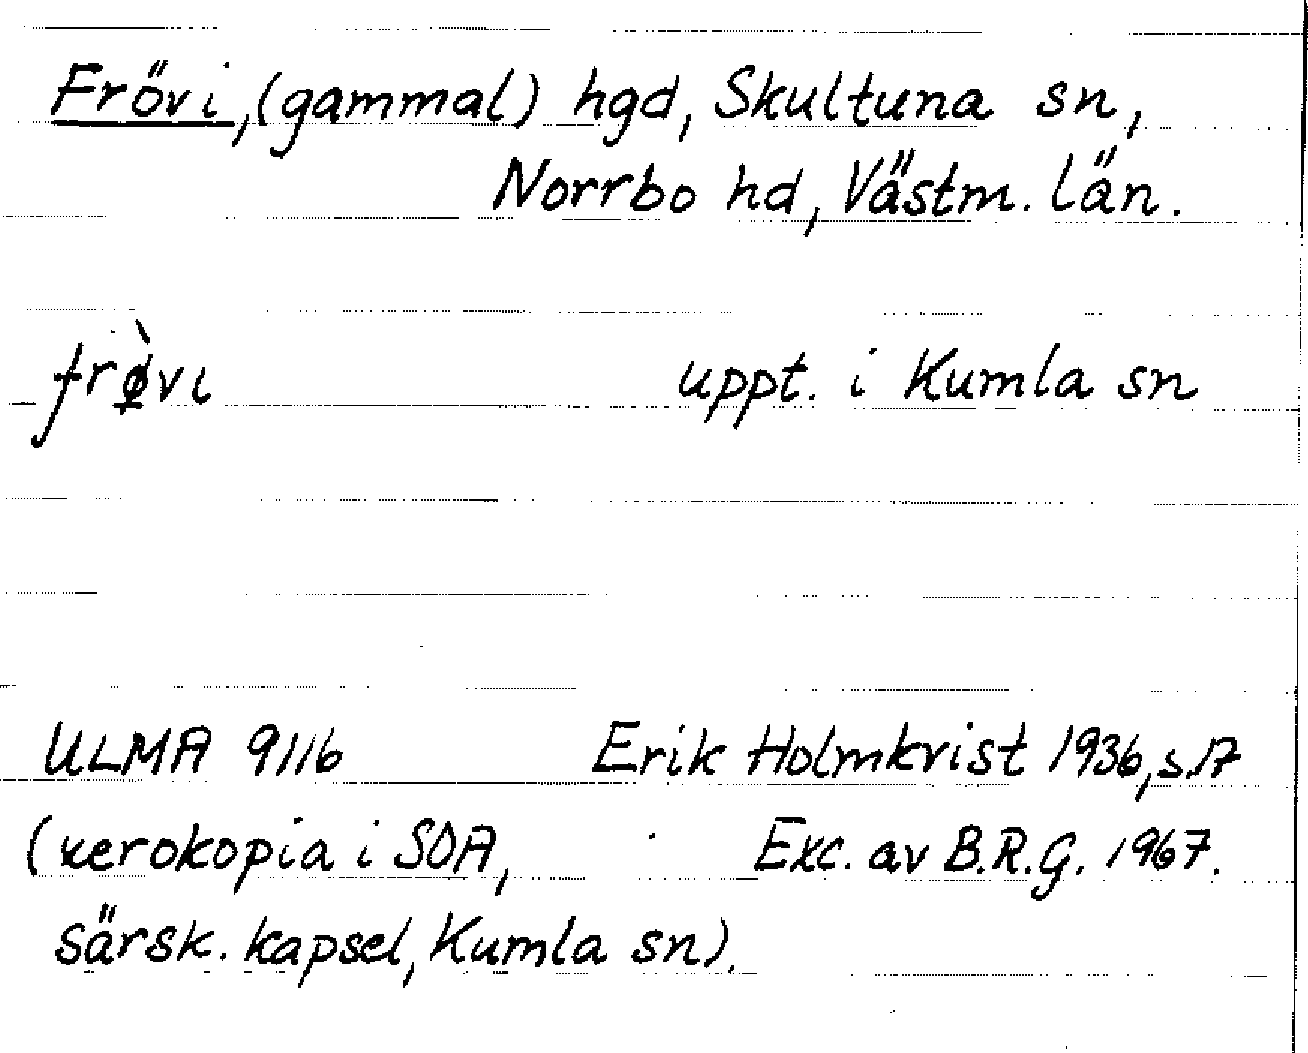 Frövi, (gammal) hgd, Skultuna sn,
Norrbo hd, Västm. län.
frø̀vi uppt. i Kumla sn
ULMA 9116 Erik Holmkvist 1936, s.17
(xerokopia i SOA, Exc. av B.R.G. 1967.
särsk. kapsel, Kumla sn).